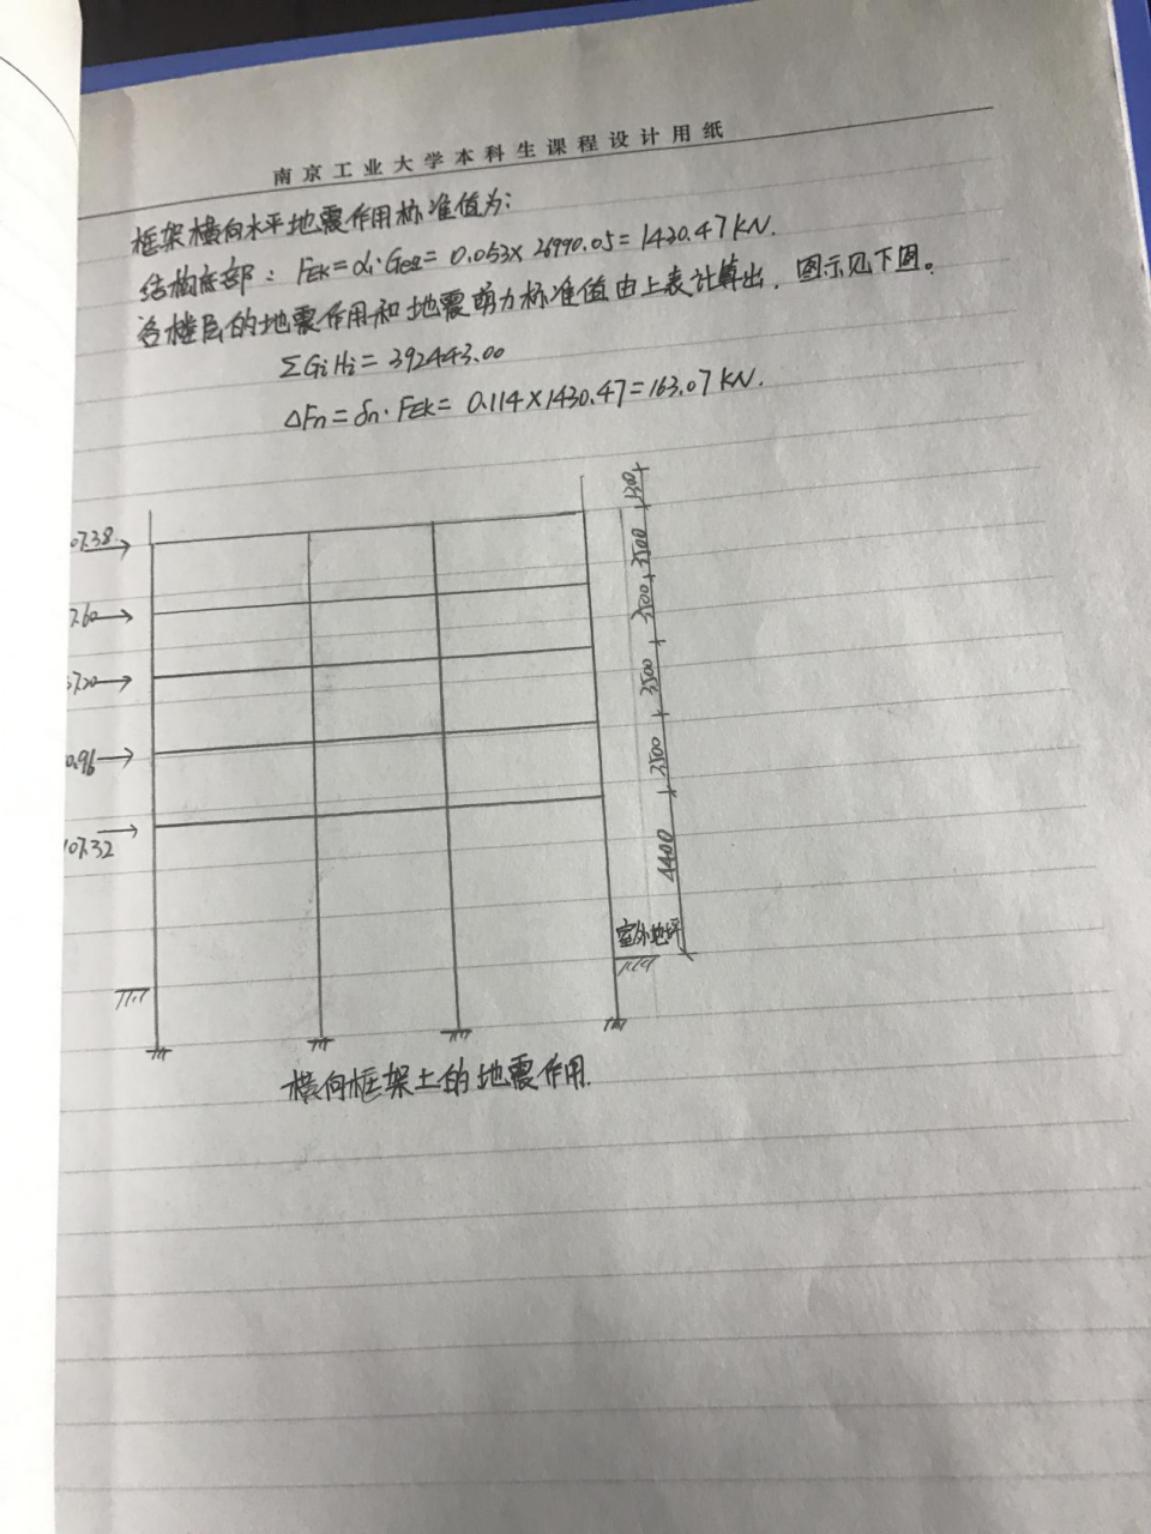 南京工业大学本科生课程设计用纸
框架横向水平地震作用标准值为:
结构底部: FEK=α1·Geq=0.053×26990.05=1430.47KN.
各楼层的地震作用和地震剪力标准值由上表计算出,图示见下图。
ΣGiHi=392443.00
ΔFn=δn·FEK=0.114×1430.47=163.07KN.
07.38
7.60
37.20
0.96
107.32
3500
3500
3500
3500
4400
室外地坪
横向框架上的地震作用.